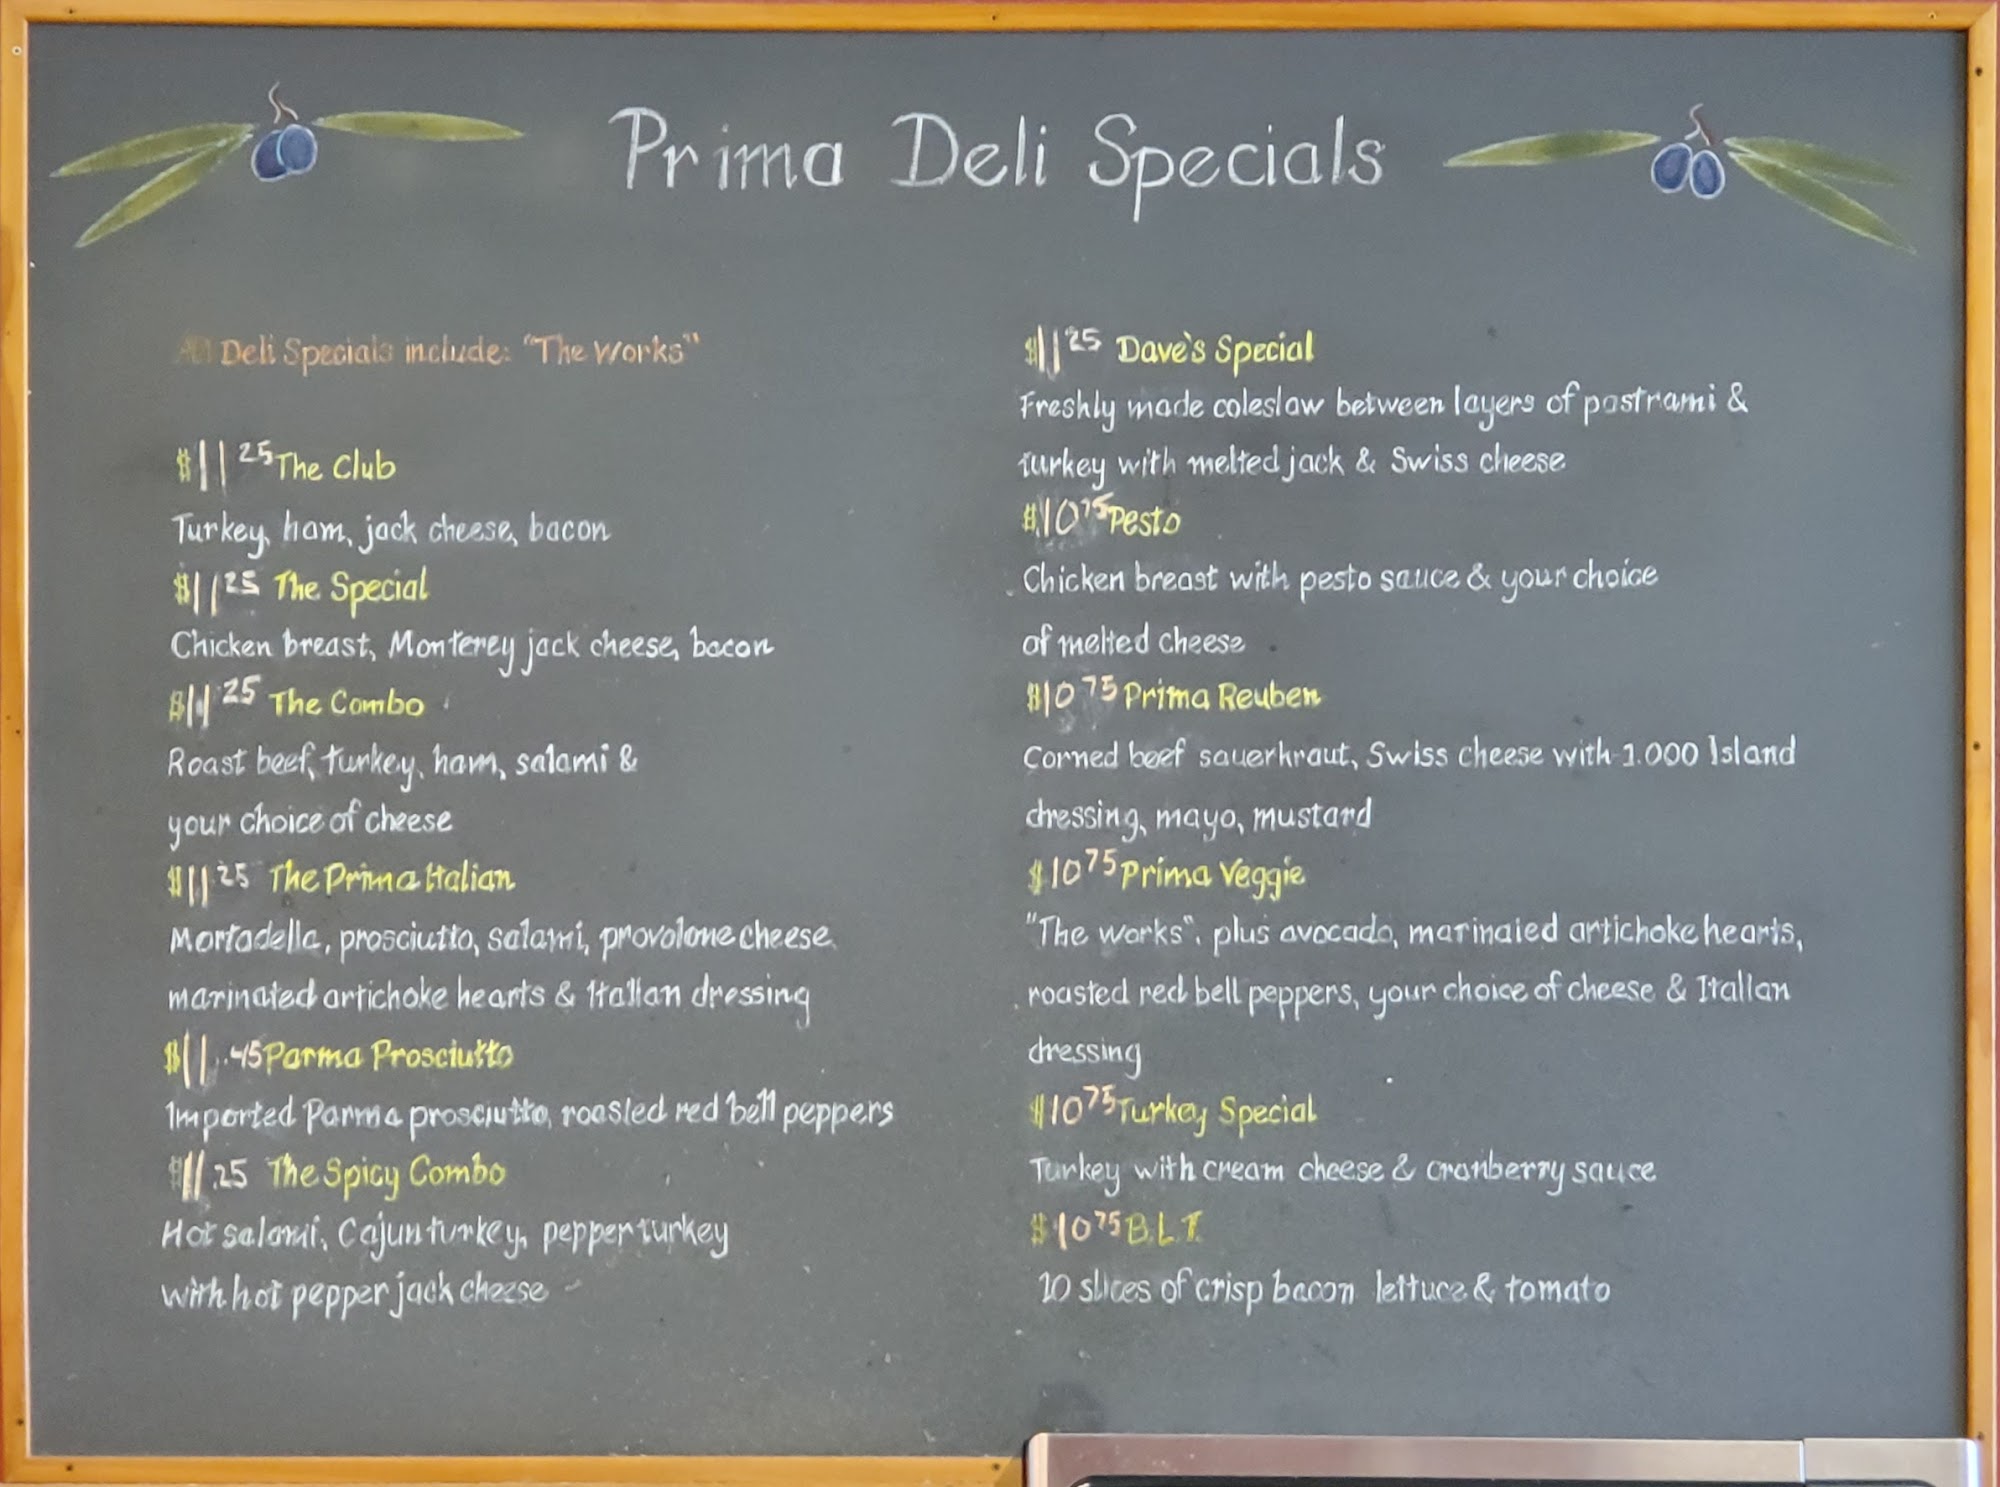 Prima Deli Specials
All Deli Specials include: "The Works"
$11 25 The Club
Turkey, ham, jack cheese, bacon
$11 25 The Special
Chicken breast, Monterey jack cheese, bacon
$11 25 The Combo
Roast beef, turkey, ham, salami &
your choice of cheese
$11 25 The Prima Italian
Mortadella, prosciutto, salami, provolone cheese
marinated artichoke hearts & Italian dressing
$11.45 Parma Prosciutto
Imported Parma prosciutto, roasted red bell peppers
$11.25 The Spicy Combo
Hot salami, Cajun turkey, pepper turkey
with hot pepper jack cheese
$11 25 Dave's Special
Freshly made coleslaw between layers of pastrami &
turkey with melted jack & Swiss cheese
$10 75 Pesto
Chicken breast with pesto sauce & your choice
of melted cheese
$10 75 Prima Reuben
Corned beef sauerkraut, Swiss cheese with 1.000 Island
dressing, mayo, mustard
$10 75 Prima Veggie
"The works", plus avocado, marinated artichoke hearts,
roasted red bell peppers, your choice of cheese & Italian
dressing
$10 75 Turkey Special
Turkey with cream cheese & cranberry sauce
$10 75 B.L.T.
10 slices of crisp bacon lettuce & tomato